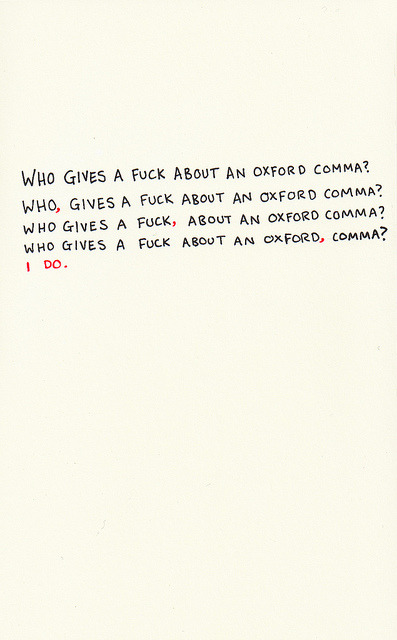 WHO GIVES A FUCK ABOUT AN OXFORD COMMA?
WHO, GIVES A FUCK ABOUT AN OXFORD COMMA?
WHO GIVES A FUCK, ABOUT AN OXFORD COMMA?
WHO GIVES A FUCK ABOUT AN OXFORD, COMMA?
I DO.